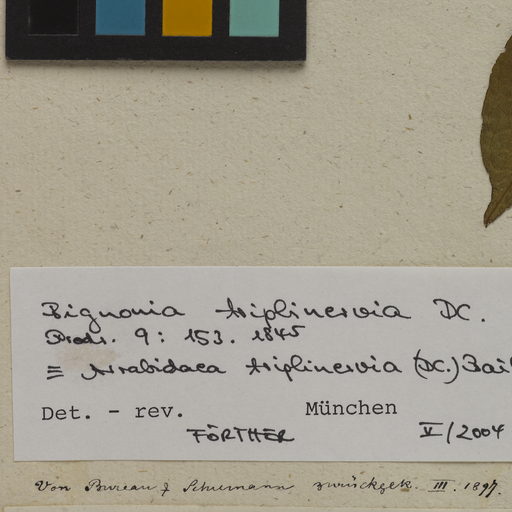 Bignonia triplinervia DC.
Prodr. 9: 153. 1845
≡ Arrabidaea triplinervia (DC.) Bail
Det. - rev. München
FÖRTHER V/2004
Von Bureau & Schumann zurückgek. III. 1897.